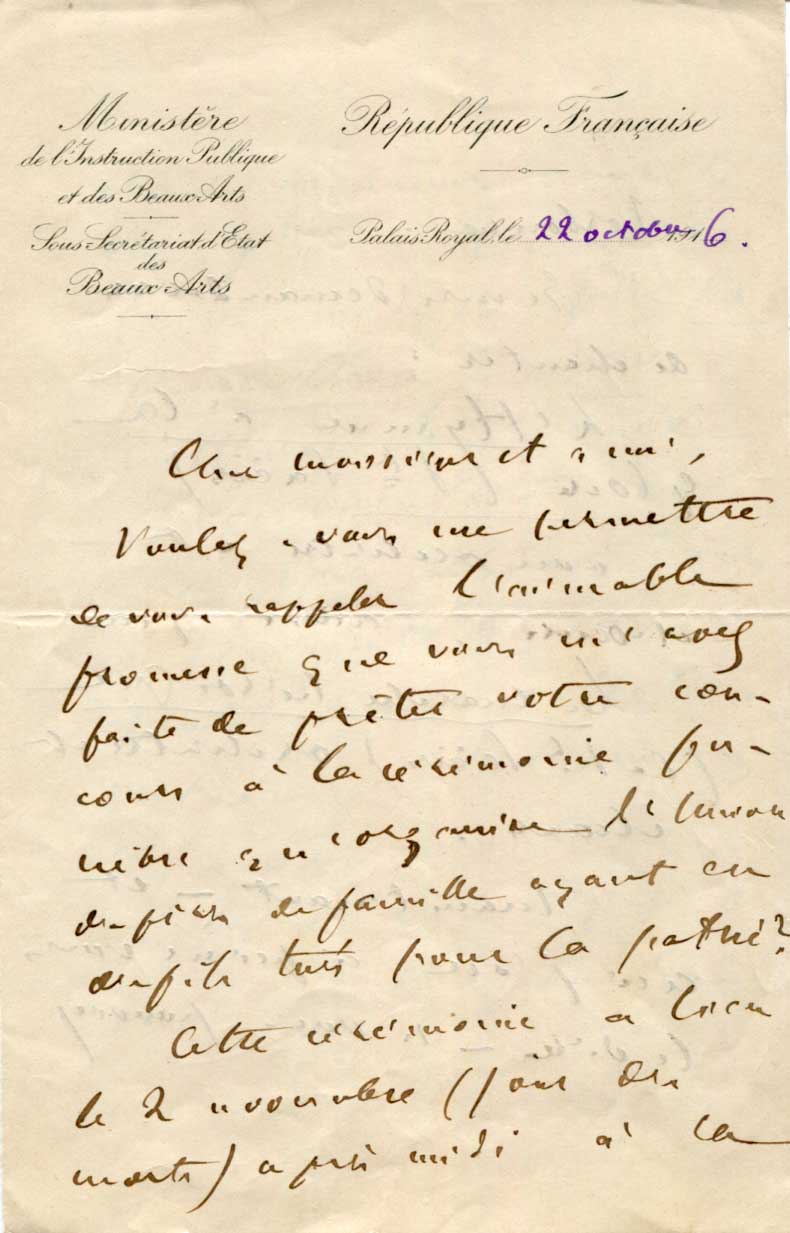 Ministère
de l'Instruction Publique
et des Beaux-Arts
Sous-Secrétariat d'Etat
des
Beaux-Arts
République Française
Palais-Royal, le 22 octobre 1916.
Cher monsieur et ami,
Voulez-vous me permettre
de vous rappeler l'aimable
promesse que vous m'avez
faite de prêter votre con-
cours à la cérémonie fu-
nèbre qu'organise l'Union
des pères de famille ayant eu
des fils tués pour la patrie?
Cette cérémonie a lieu
le 2 novembre (jour des
morts) après midi à la